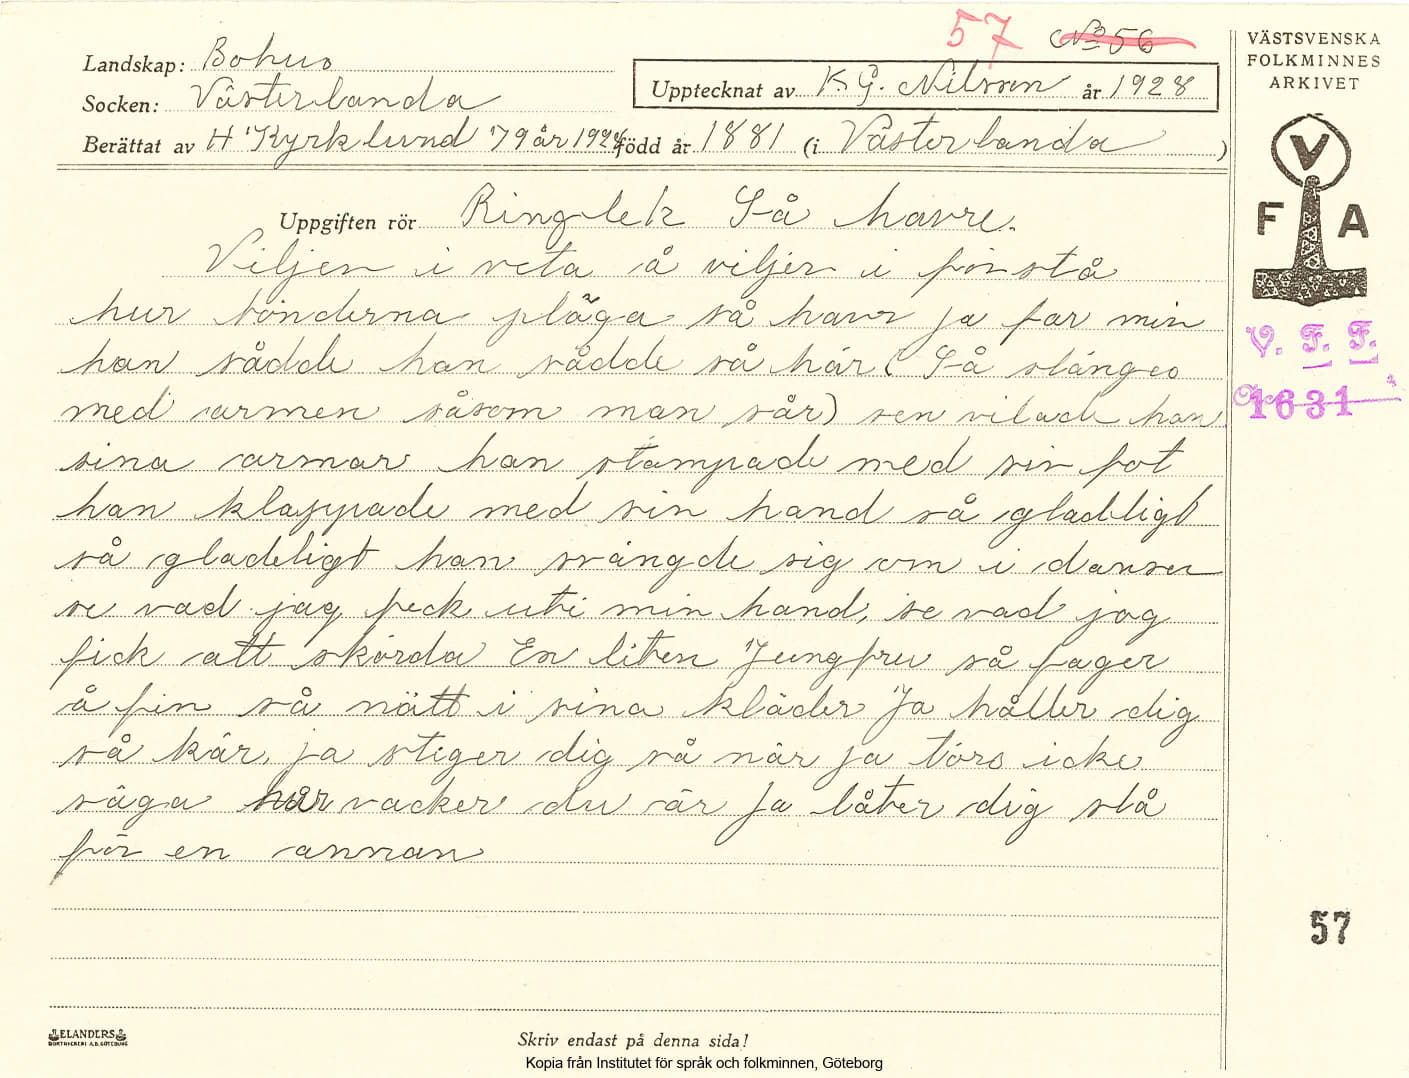 57 No 56
Landskap: Bohus
Socken: Västerlanda
Upptecknat av K.G. Nilsson år 1928
Berättat av H Kyrklund 79 år 1928 född år 1881 (i Västerlanda )
Uppgiften rör Ringlek Så havre.
Viljen i veta å viljen i förstå
hur bönderna pläga så havr ja far min
han sådde han sådde så här (Så slänges
med armen såsom man sår) sen vilade han
sina armar han stampade med sin fot
han klappade med sin hand så gladeligt
så gladeligt han svängde sig om i dansen
se vad jag feck uti min hand, se vad jag
fick att skörda En liten Jungfru så fager
å fin så nätt i sina kläder Ja håller dig
så kär, ja steger dig så när ja törs icke
säga hur vacker du är Ja låter dig stå
för en annan
VÄSTSVENSKA
FOLKMINNES
ARKIVET
V
F A
V. F. F.
1631
57
ELANDERS
BOKTRYCKERI A.B. GÖTEBORG
Skriv endast på denna sida!
Kopia från Institutet för språk och folkminnen, Göteborg